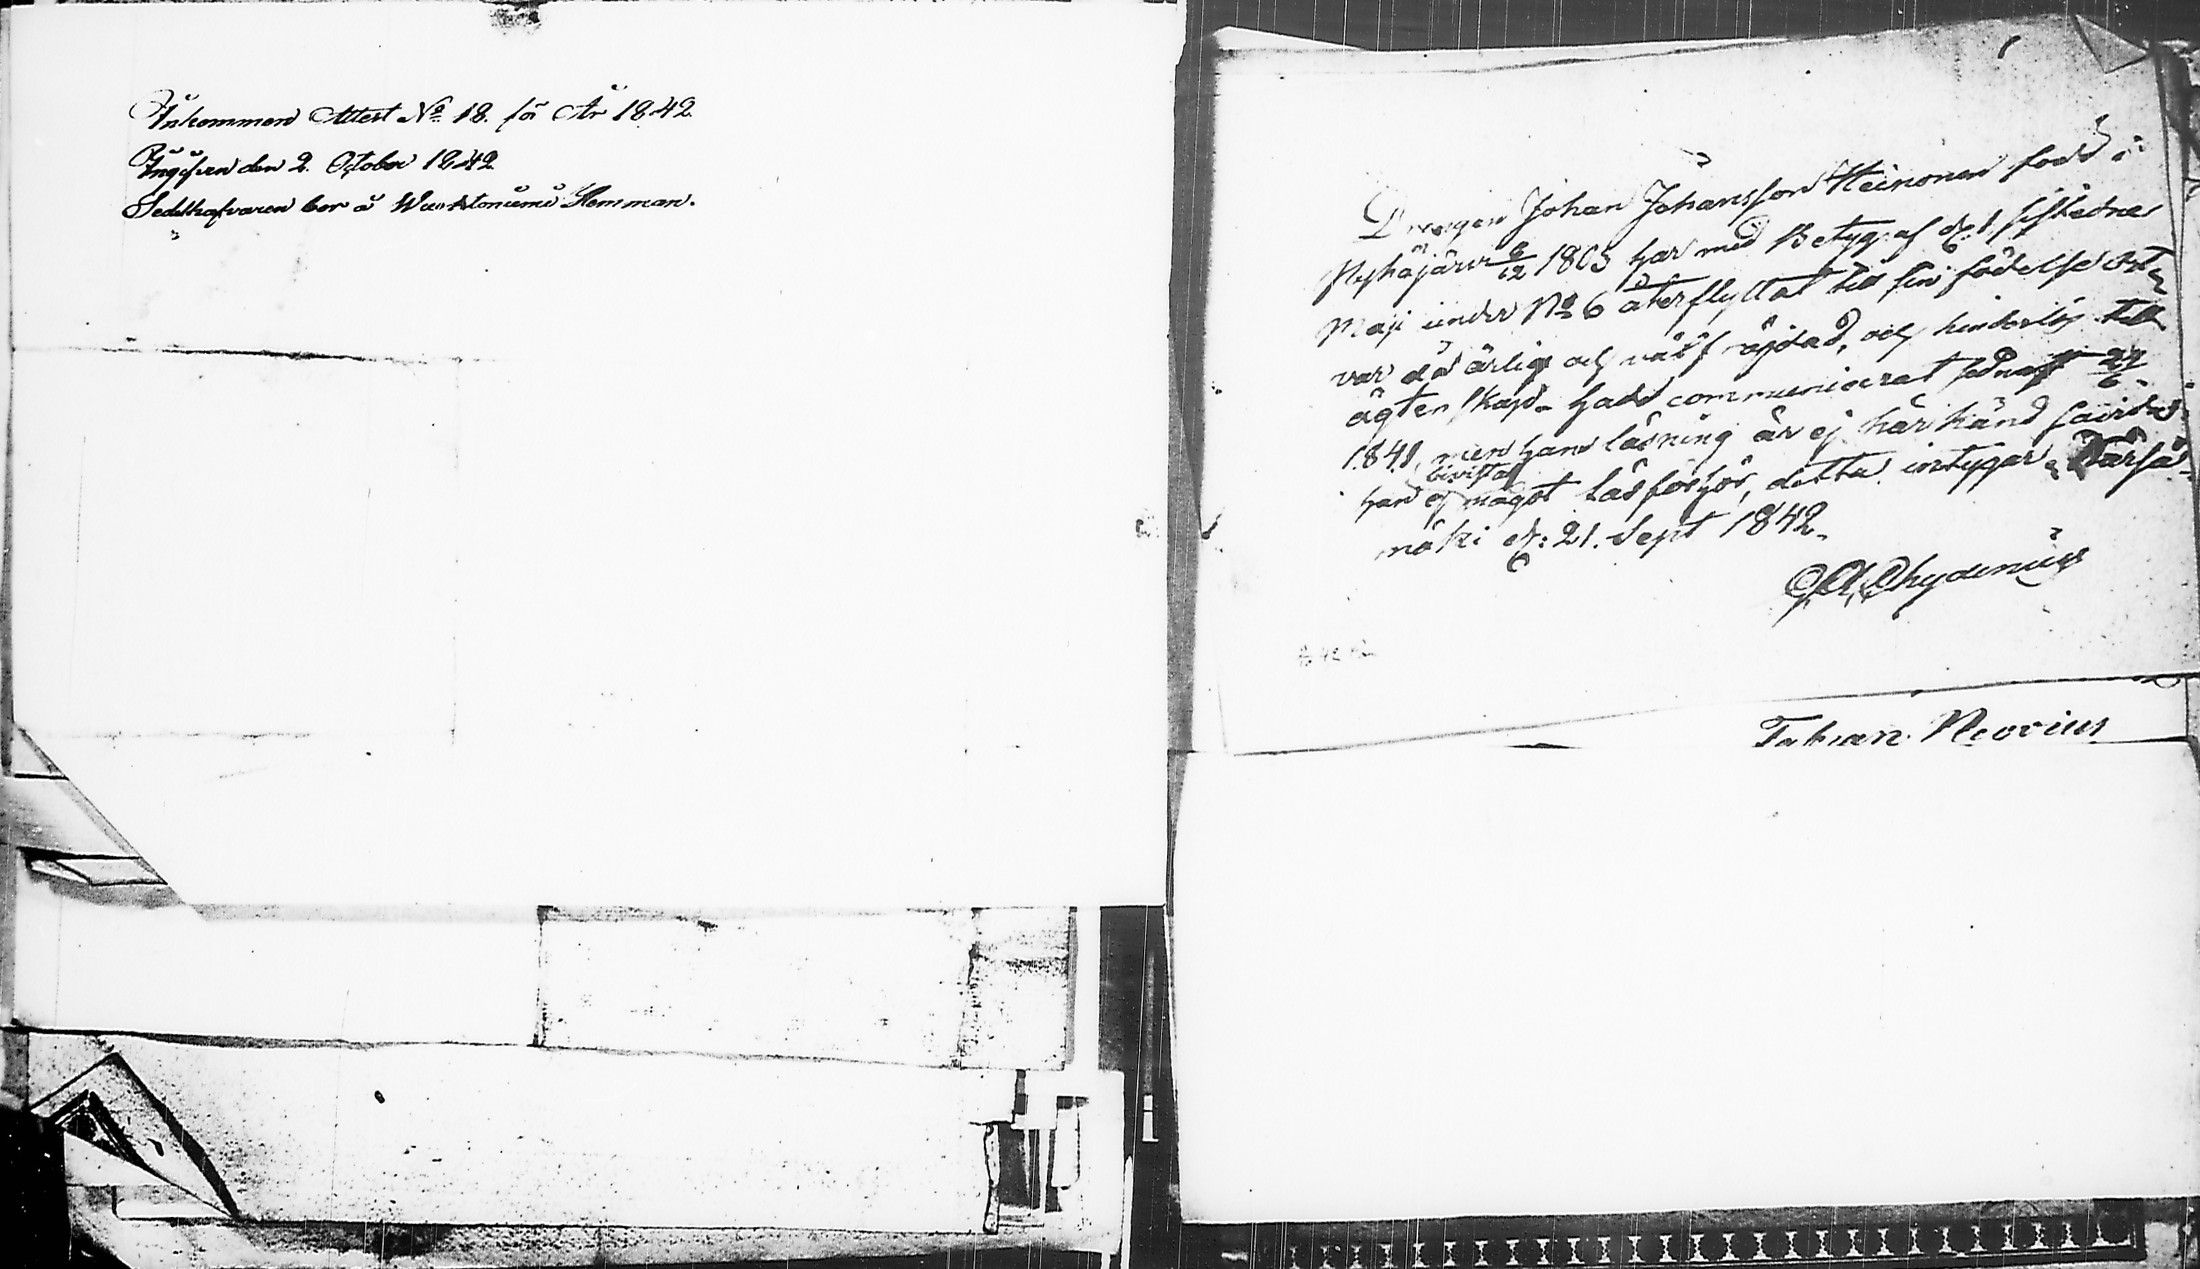 Inkommen Attest No 18. för År 1842.
Ingifven den 2. October 1842
Sedelhafvaren bor å Hemman.
Drengen Johan Johansson Heinonen född i
Pyhäjärvi 6/12 1803 har med Betyg af d. 1 sistledne
Maji under No 6 återflyttat till sin födelse ort
var då ärlig och väl frägdad, och hinderlös till
ägtenskap. hade communicerat sednast 27/6
1841, men hans läsning är ej här känd
han ej bivistat något läsförhör, detta intygar.
mäki d: 21. Sept 1842.
Chydenius
Fabian Neovius